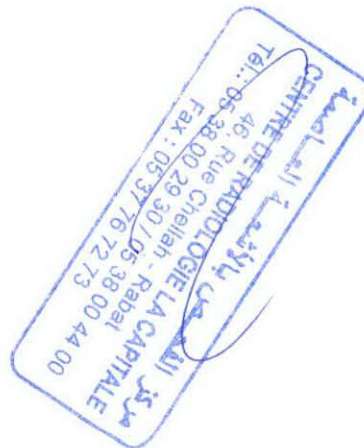 مركز الفحص بالأشعة العاصمة
CENTRE DE RADIOLOGIE LA CAPITALE
46, Rue Chellah - Rabat
Tél.: 05 38 00 29 30 / 05 38 00 44 00
Fax : 05 37 76 72 73